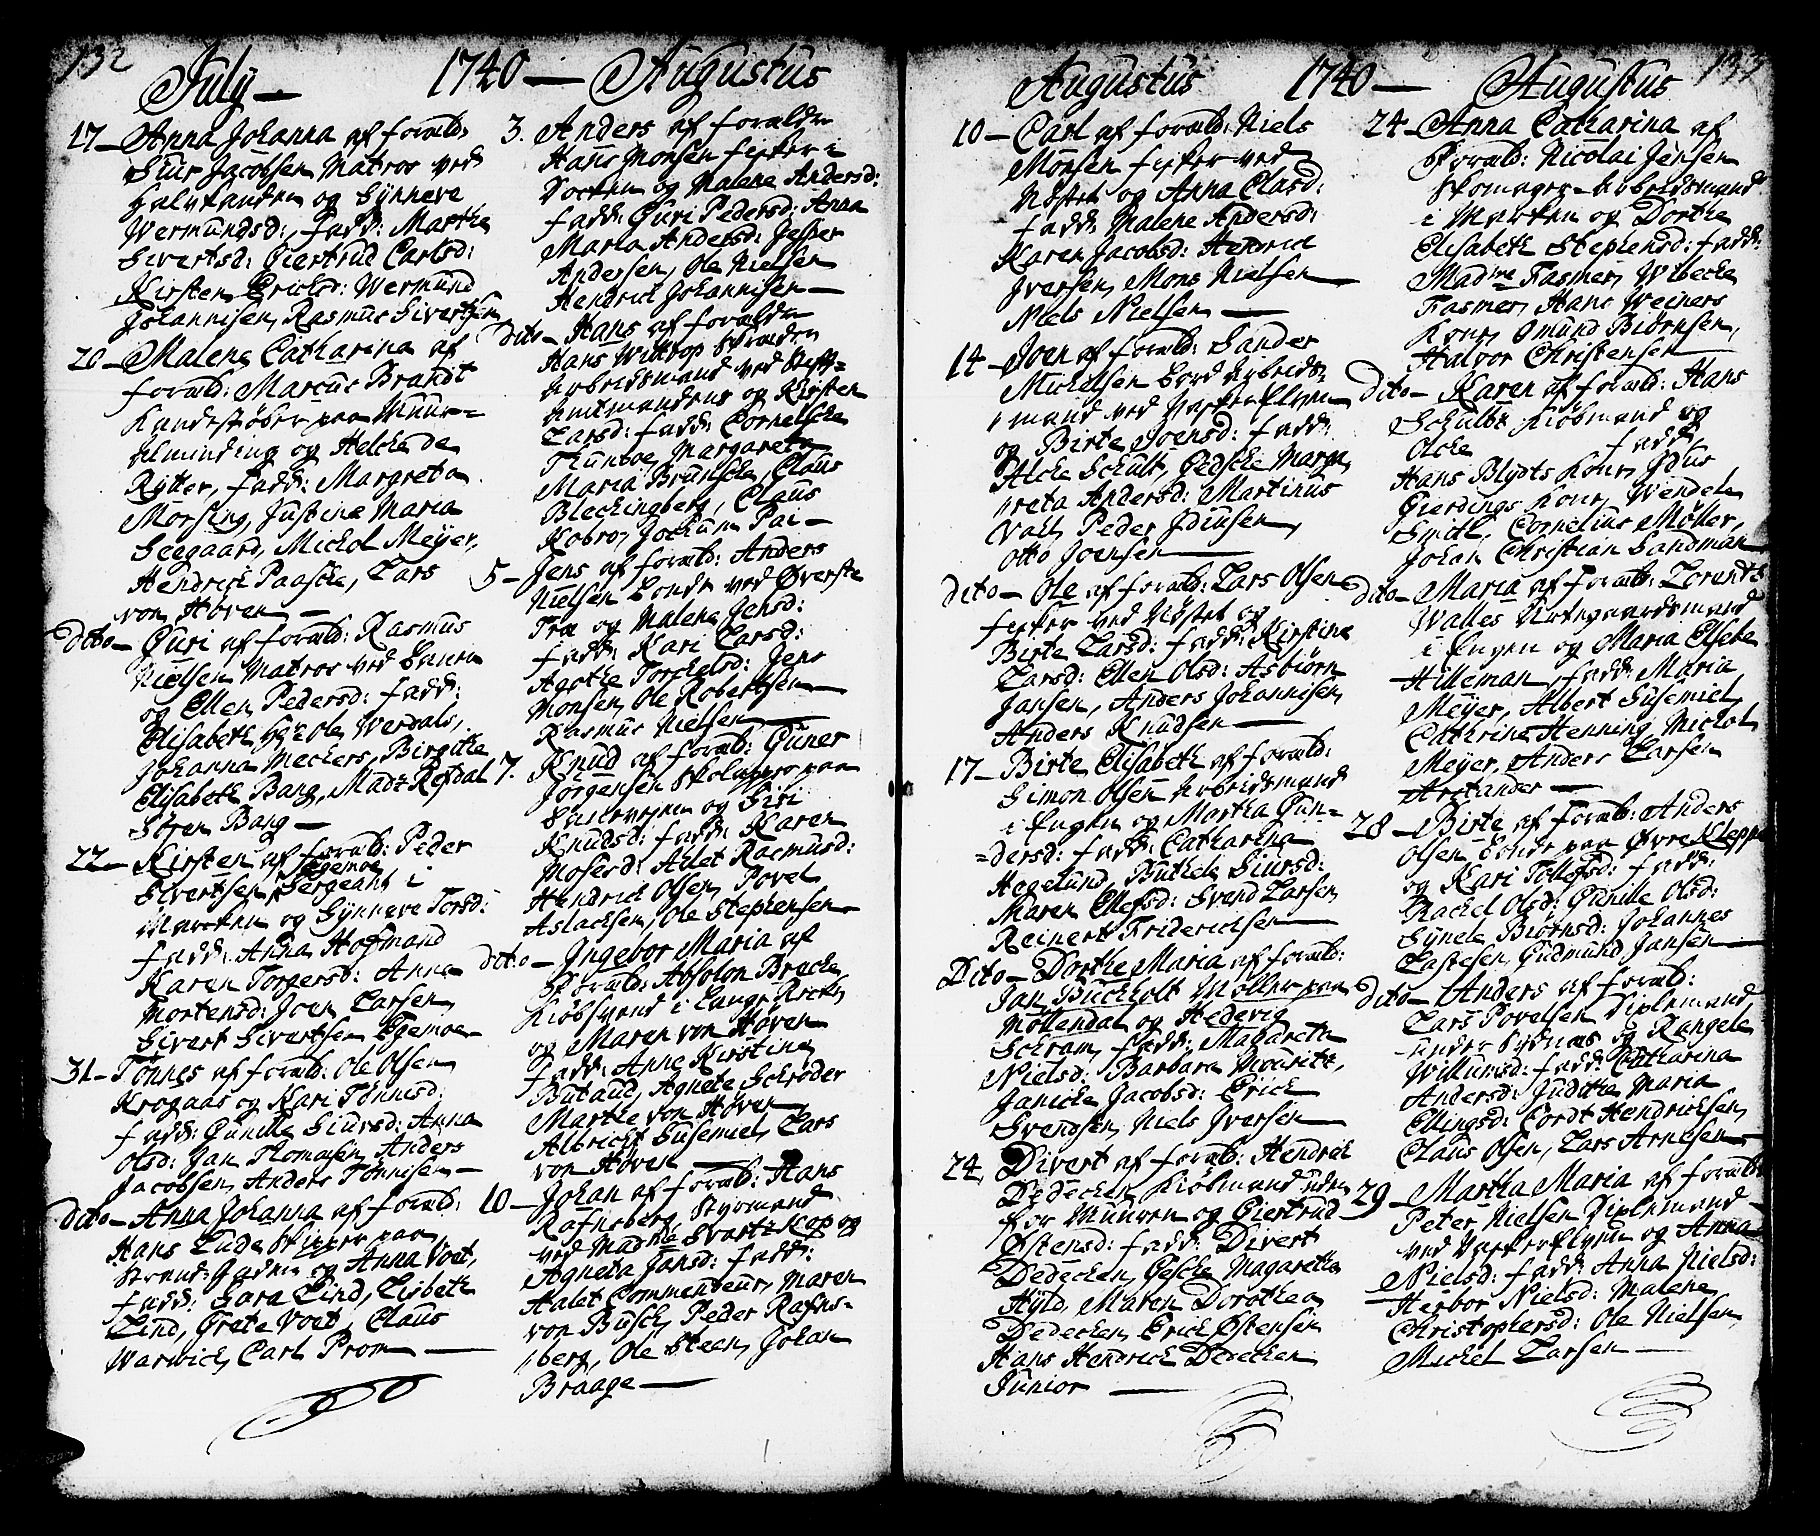 132
July — 1740 — Augustus
17 — Anna Johanna af foræld:
Siur Jacobsen Matros ved
og Synneve
Wermundsd: fadd: Marthe
Sivertsd: Giertrud Carlsd:
Kirsten Ericksd: Wermund
Johannisen, Rasmus Sivertsen
20 — Malene Catharina af
foræld: Marcus Brandt
Kandestøber paa Muur=
Alminding og Helche de
Rytter, fadd: Margreta
Morsing, Justina Maria
Seegaard, Michel Meyer,
Hendrich Paasche, Lars
von Høven —
Dito — Guri af foræld: Rasmus
Nielsen Matros ved
og Ellen Pedersd: fadd:
Elisabeth Ole Werdals,
Johanna Meckers, Birgithe
Elisabeth Bang, Mads Refdal
Søren Bang —
22 — Kirsten af foræld: Peder
Sivertsen Egemoe Sergeant i
Marcken og Synneve Torsd:
fadd: Anna Hofmand
Karen Torgersd: Anna
Mortensd: Joen Larsen,
Sivert Sivertsen Egemoe —
31 — Tönnes af foræld: Ole Olsen
Krogaas og Kari Tönnesd:
fadd: Gunille Siursd: Anna
Olsd: Jan Thomasen, Anders
Jacobsen, Anders Tönnisen —
Dito — Anna Johanna af foræld:
Hans Lude Skipper paa
Strand: og Anna Voet,
fadd: Sara Lind, Lisbeth
Lind, Grete Voet, Claus
Warwich, Carl Prom —
3. Anders af foræld:
Hans Monsen fisker i
og Malene Andersd:
fadd: Guri Pedersd: Anna
Maria Andersd: Jesper
Andersen, Ole Nielsen
Hendrich Johannisen —
dito — Hans af foræld:
Hans Wittrop
Arbeidsmand ved Stift=
Amtmandens og Kirsten
Larsd: fadd: Cornelische
Thunboe, Margareta
Maria Brunsche, Claus
Bleckingberg, Claus
Kobro, Jochum Pai —
5 — Jens af foræld: Anders
Nielsen Bonde ved Øverste
Træ og Malene Jensd:
fadd: Kari Larsd:
Agothe Torchelsd: Jens
Monsen, Ole Robertsen —
Rasmus Nielsen —
7. Knud af foræld: Guner
Jörgensen paa
og Siri
Knudsd: fadd: Karen
Mosesd: Adlet Rasmusd:
Hendrich Olsen, Povel
Aslachsen, Ole Stephensen —
dito — Ingebor Maria af
Foræld: Absolon Bracke,
Kiöbsvend i
og Maren von Høven
fadd: Anne Kirstine
Butaud, Agnete Schrøder
Marthe von Høven,
Albricht Susemiel, Lars
von Høven —
10 — Johan af foræld: Hans
Rafnsberg, Styrmand
ved Madme Svartzkop og
Agneta Jansd: fadd:
Halet Commendeur, Maren
von Busch, Peder Rafns=
berg, Ole Steen, Johan
Braage —
133
Augustus 1740 — Augustus
10 — Carl af foræld: Niels
Monsen fisker ved
Nöstet og Anna Clasd:
fadd: Malene Andersd:
Karen Jacobsd: Hendrich
Iversen, Mons Nielsen
Niels Nielsen —
14 — Joen af foræld: Sander
Michelsen Arbeids=
mand ved
og Birte Joensd: fadd:
Alche Schult, Gedsche Marga
reta Andersd: Martinus
Valt, Peder Idiusen,
Otto Joensen —
dito — Ole af foræld: Lars Olsen
fisker ved Nöstet og
Birte Larsd: fadd: Kirstine
Larsd: Ellen Olsd: Asbiörn
Jansen, Anders Johannisen,
Anders Knudsen —
17 — Birte Elisabeth af foræld:
Simon Olsen Arbeidsmand
i Engen og Martha Gun=
=dersd: fadd: Catharina
Hegelund, Buthele Siursd:
Maren Ellefsd: Svend Larsen,
Reinert Friderichsen —
Dito — Dorthe Maria af foræld:
Jan Buckholt Möller paa
Möllendal og Hedevig
Schram, fadd: Magarethe
Nielsd: Barbara Mouritz,
Janicke Jacobsd: Erick
Svendsen, Niels Iversen —
24, Divert af foræld: Hendrich
Dedecken Kiöbmand uden
for Muuren og Giertrud
Østensd: fadd: Divert
Dedecken, Gesche Magarethe
Hyld, Maren Dorothea
Dedecken, Erich Østensen
Hans Hendrich Dedecken
Junior —
24 — Anna Catharina af
Foræld: Nicolai Jensen
Skomager=Arbeidsmand
i Marken og Dorthe
Elisabeth Stephensd: fadd:
Madme Fasmer, Wibecke
Fasmer, Hans Weiners
Kone, Omund Biörnsen,
Halvor Christensen —
dito — Karen af foræld: Hans
Schultz Kiöbmand og
Olche fadd:
Hans Blydts Kone, Idus
Gierdings Kone, Wendele
Smidt, Cornelius Møller,
Johan Christian Sandman —
dito — Maria af Foræld: Lorentz
Walles
i Engen og Maria Elsebe
Hilleman, fadd: Maria
Meyer, Albert Susemiel,
Cathrine Henning, Michel
Meyer, Anders Larsen
Arstander —
28 — Birte af foræld: Anders
Olsen Bonde paa Øvre Kleppe
og Kari Tollefsd: fadd:
Rachel Olsd: Gunille Olsd:
Synele Biörnsd: Johannes
Lassesen, Gudmund Jansen —
dito — Anders af foræld:
Lars Povelsen
under Sydnæs og Rangele
Willumsd: fadd: Catharina
Andersd: Judithe Maria
Ellingsd: Cordt Hendricksen,
Claus Olsen, Lars Arnesen —
29 — Martha Maria af foræld:
Peter Nielsen
ved og Anna
Nielsd: fadd: Anna Nielsd:
Herbor Nielsd: Malene
Christophersd: Ole Nielsen
Michel Larsen —